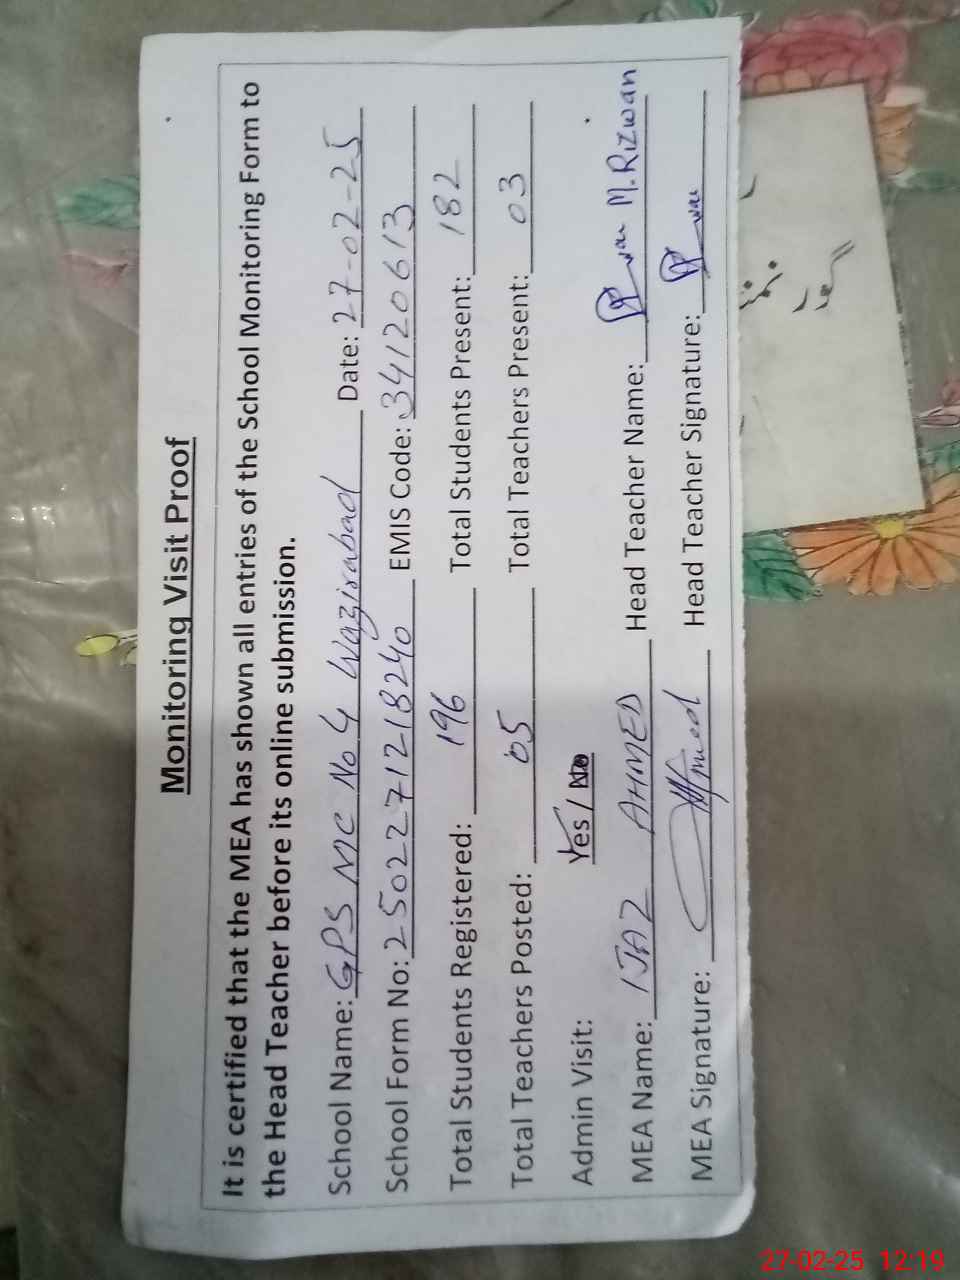 Monitoring Visit Proof
It is certified that the MEA has shown all entries of the School Monitoring Form to
the Head Teacher before its online submission.
School Name: GPS MC No 4 Wazirabad Date: 27-02-25
School Form No: 2502271218240 EMIS Code: 34120613
Total Students Registered: 196 Total Students Present: 182
Total Teachers Posted: 05 Total Teachers Present: 03
Admin Visit: Yes / No
MEA Name: IJAZ AHMED Head Teacher Name: M.Rizwan
MEA Signature: Ahmed Head Teacher Signature:
27-02-25 12:19